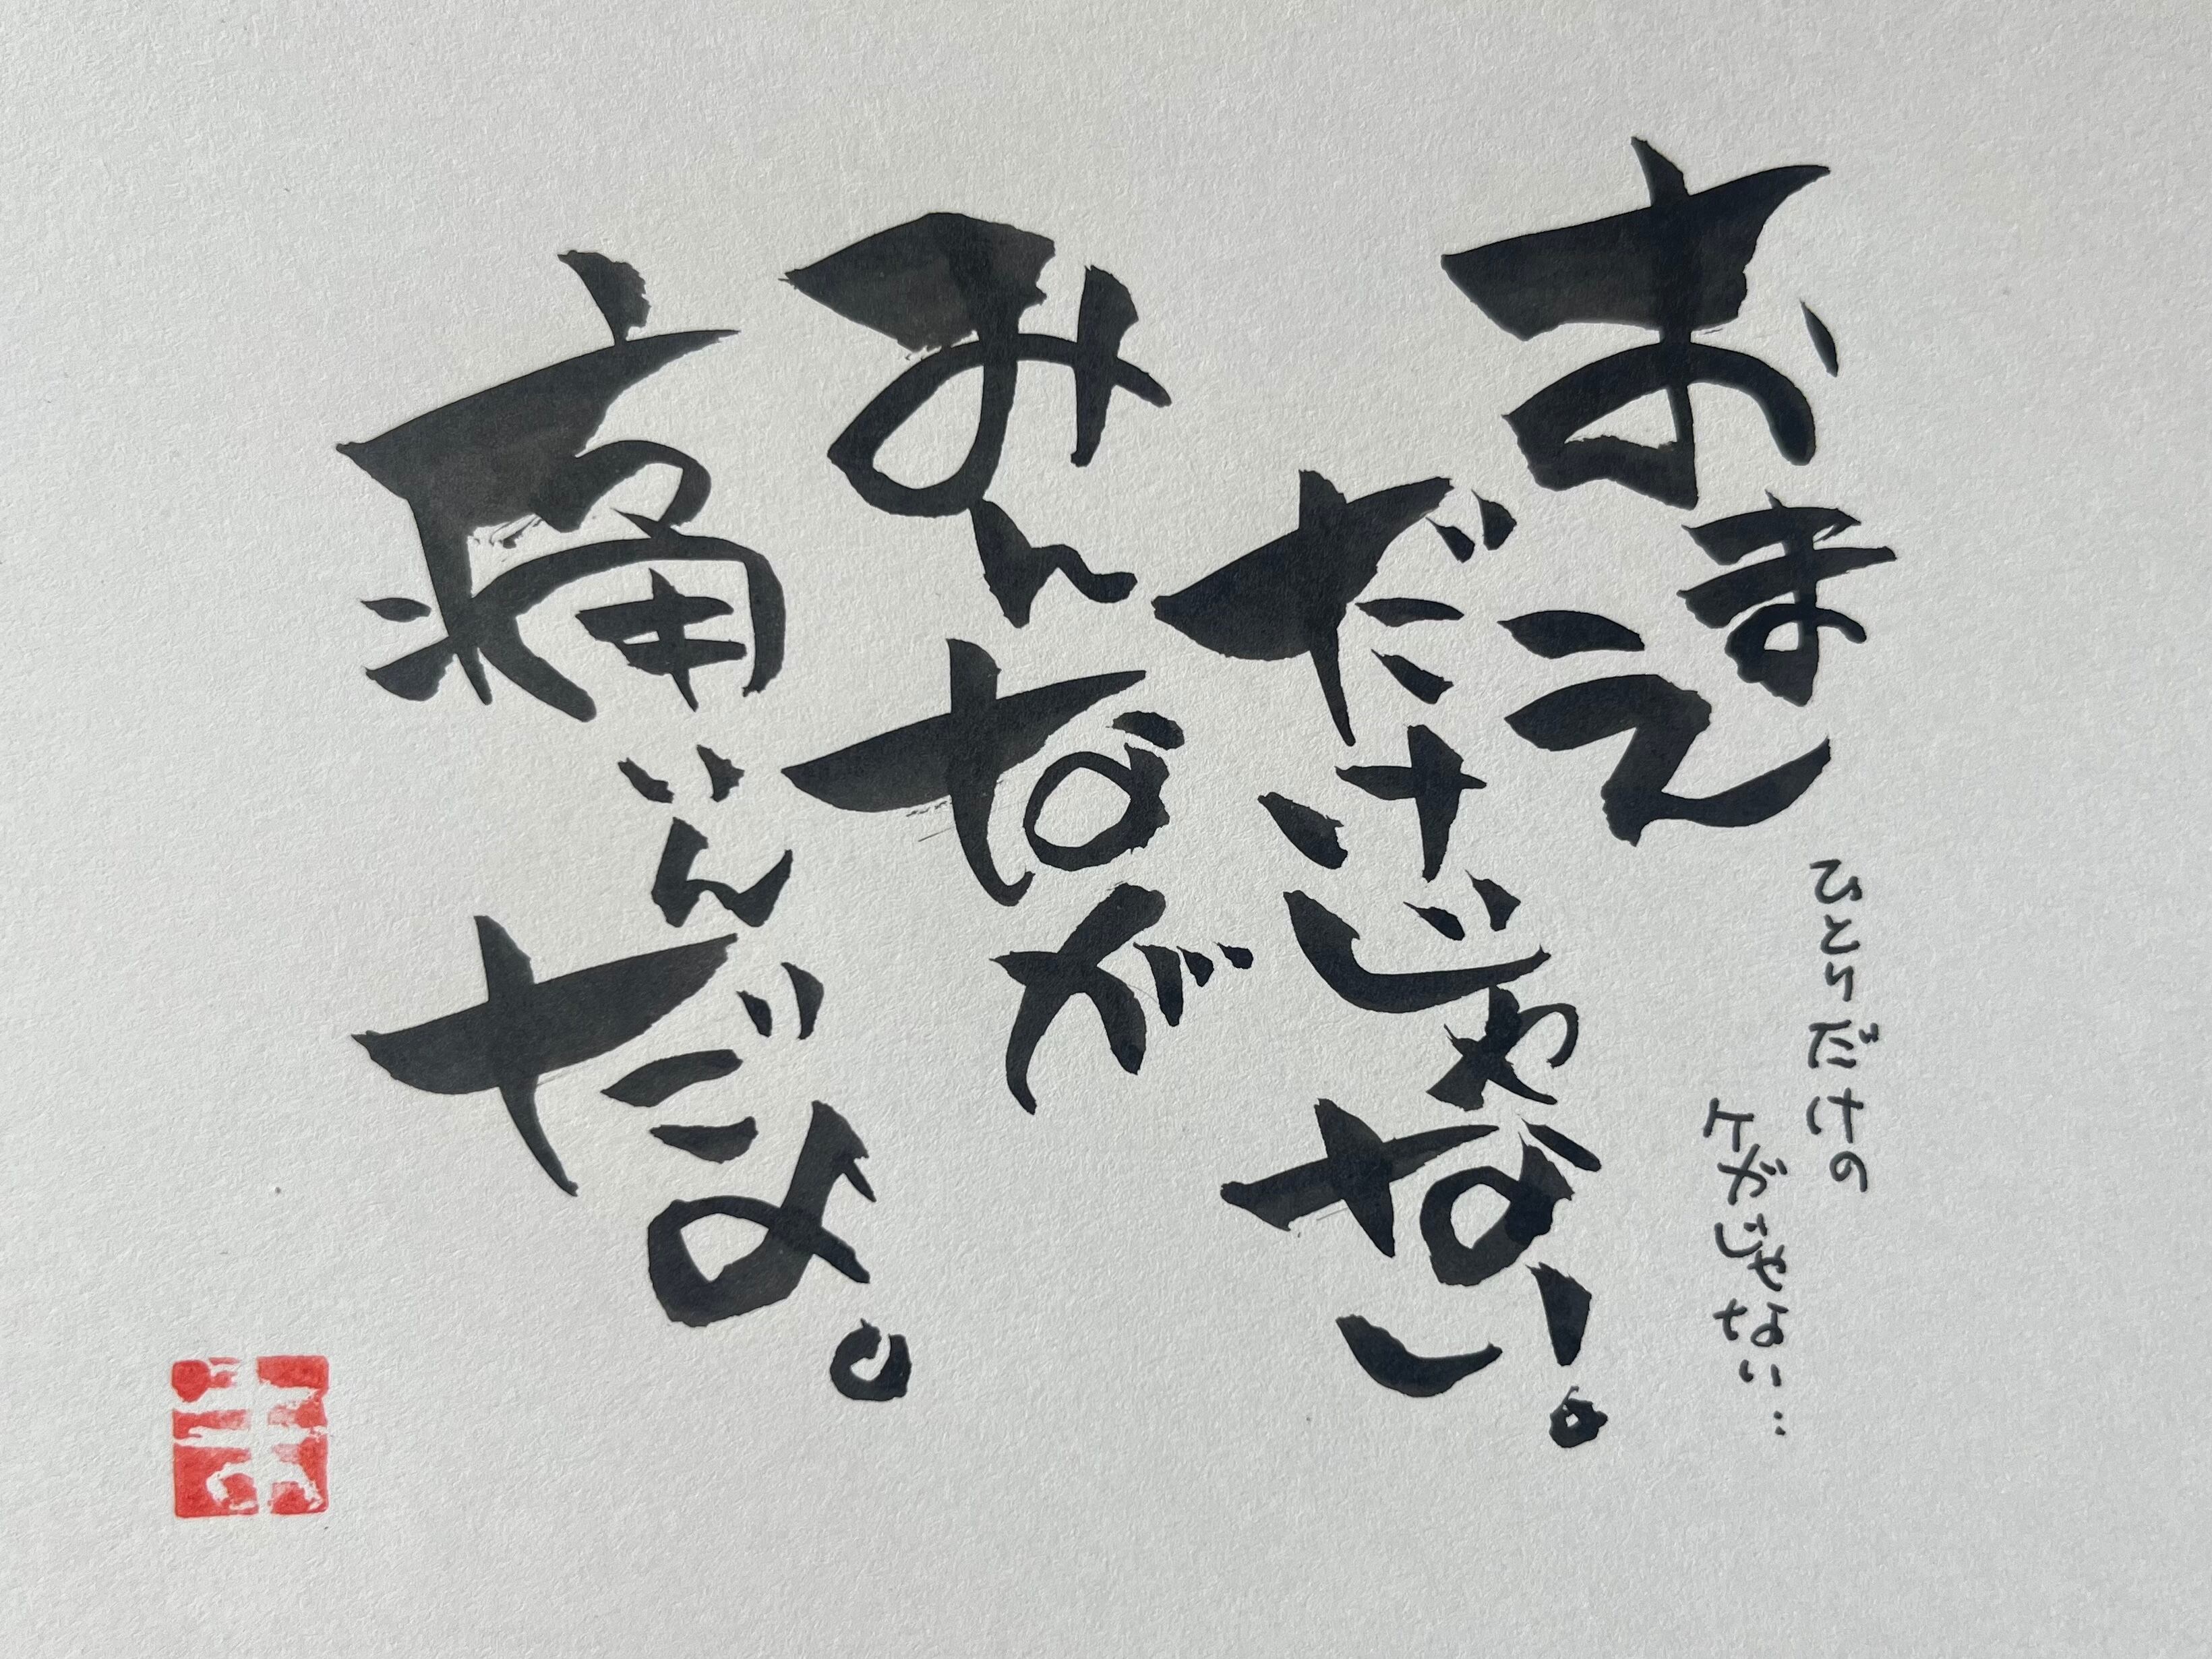 おまえ
だけじゃない。
みんなが
痛いんだよ。
ひとりだけの
ケガじゃない…